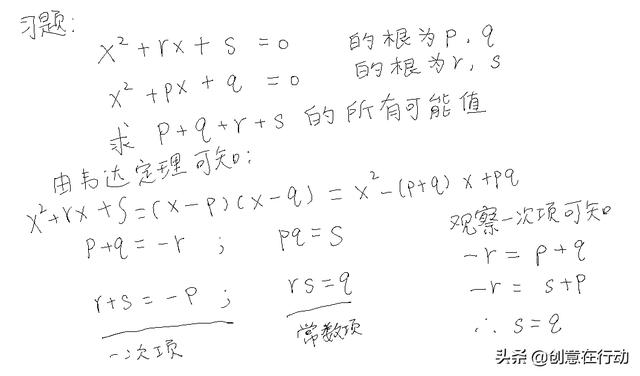 习题:
x² + rx + s = 0 的根为 p, q
x² + px + q = 0 的根为 r, s
求 p+q+r+s 的所有可能值
由韦达定理可知:
x²+rx+s=(x-p)(x-q) = x²-(p+q)x+pq
p+q = -r ; pq = s
r+s = -p ; rs = q
一次项 常数项
观察一次项可知
-r = p+q
-r = s+p
∴ s=q
头条 @创意在行动